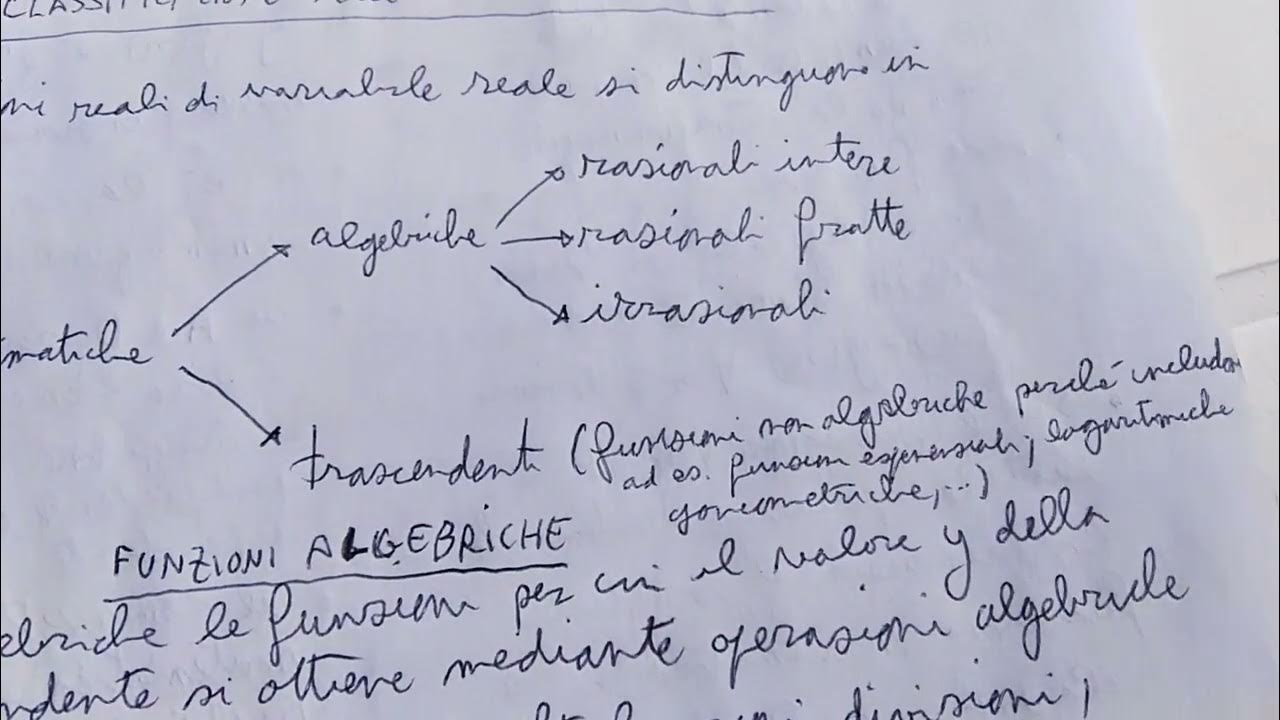 ni reali di variabile reale si distinguono in
rasionali intere
algebriche rasionali fratte
irrasionali
matiche
trascendenti (funsioni non algebriche perché includo
ad es. funsioni esponensiali, logaritmiche
goniometriche, ...)
FUNZIONI ALGEBRICHE
ebriche le funsioni per cui il valore y della
ndente si ottiene mediante operasioni algebriche
divisioni,